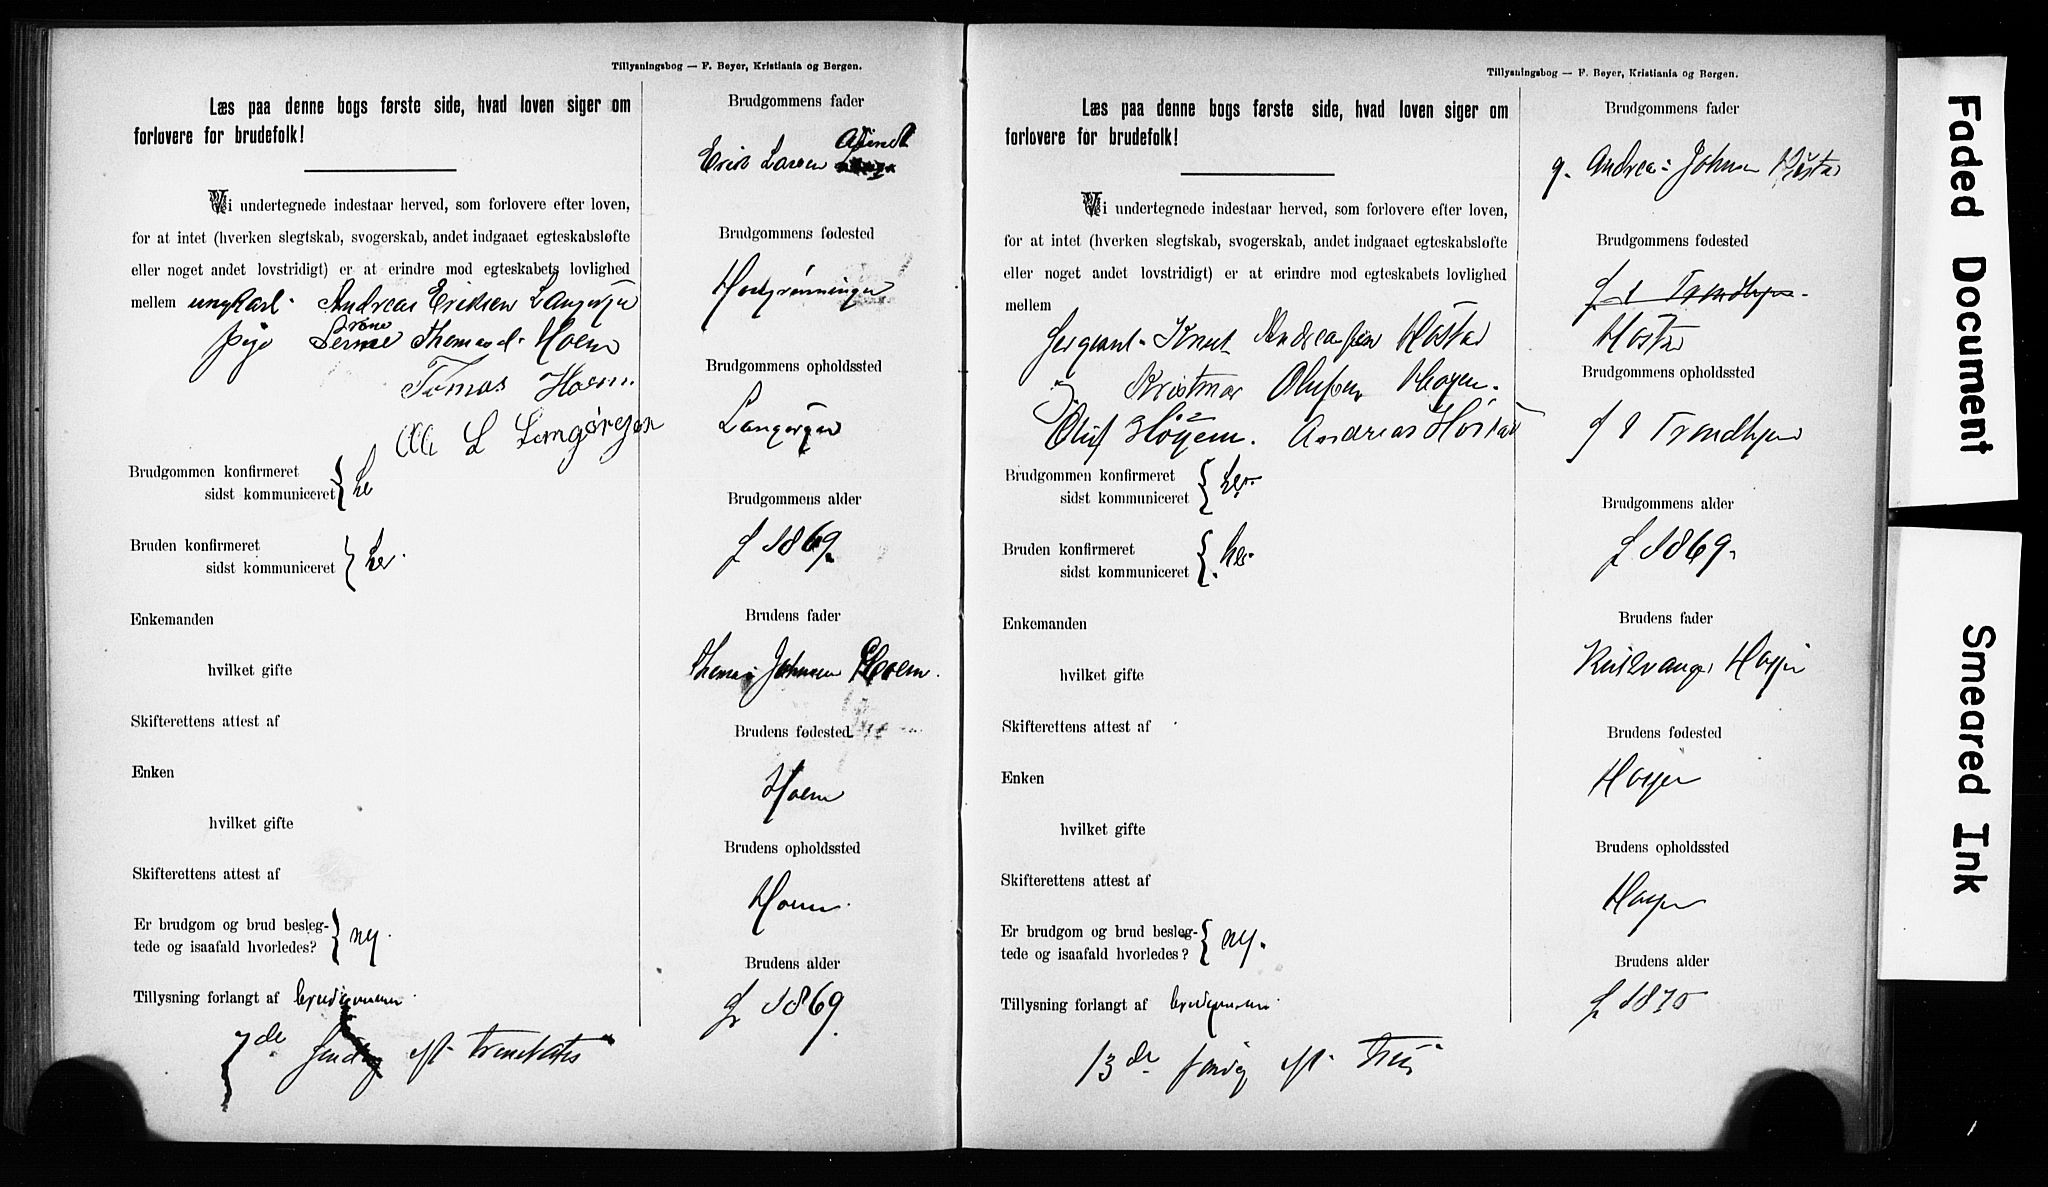 Tillysningsbog — F. Beyer, Kristiania og Bergen.
Læs paa denne bogs første side, hvad loven siger om
forlovere for brudefolk!
Vi undertegnede indestaar herved, som forlovere efter loven,
for at intet (hverken slegtskab, svogerskab, andet indgaaet egteskabsløfte
eller noget andet lovstridigt) er at erindre mod egteskabets lovlighed
mellem ungkarl Andreas Eriksen
pige Thomasd. Hoem
Tomas Hoem
L
Brudgommen konfirmeret
sidst kommuniceret } her
Bruden konfirmeret
sidst kommuniceret } her.
Enkemanden
hvilket gifte
Skifterettens attest af
Enken
hvilket gifte
Skifterettens attest af
Er brudgom og brud besleg-
tede og isaafald hvorledes? } nej.
Tillysning forlangt af brudgommen
7de søndag eft. trinitatis
Brudgommens fader
Erik Larsen
Brudgommens fødested
Brudgommens opholdssted
Brudgommens alder
f 1869.
Brudens fader
Thomas Johnsen Hoem.
Brudens fødested
Hoem
Brudens opholdssted
Hoem.
Brudens alder
f 1869.
Tillysningsbog — F. Beyer, Kristiania og Bergen.
Læs paa denne bogs første side, hvad loven siger om
forlovere for brudefolk!
Vi undertegnede indestaar herved, som forlovere efter loven,
for at intet (hverken slegtskab, svogerskab, andet indgaaet egteskabsløfte
eller noget andet lovstridigt) er at erindre mod egteskabets lovlighed
mellem
Sergeant Knut Andreassen Hostad
Olufsen
Oluf Andreas Hostad
Brudgommen konfirmeret
sidst kommuniceret { her.
Bruden konfirmeret
sidst kommuniceret { her.
Enkemanden
hvilket gifte
Skifterettens attest af
Enken
hvilket gifte
Skifterettens attest af
Er brudgom og brud besleg-
tede og isaafald hvorledes? { nej.
Tillysning forlangt af brudgommen
13de søndag eft. trin
Brudgommens fader
g. Andreas Johnsen Hostad
Brudgommens fødested
Trondhjem
Hostad
Brudgommens opholdssted
Trondhjem
Brudgommens alder
f 1869.
Brudens fader
Brudens fødested
Brudens opholdssted
Brudens alder
f 1870
Faded Document
Smeared Ink